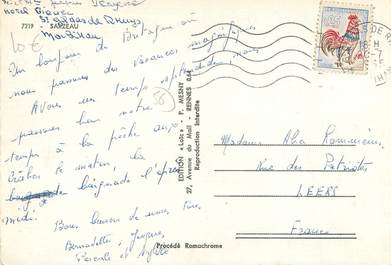 7219 - SARZEAU
10€
Un bonjour de Bretagne où
nous passons des vacances magnifiques
Avons un temps splendide, nous
passons bon notre
temps à la pêche aux
le matin, la
baignade l'après
midi.
Bons baisers de nous tous,
Bernadette, Jacques,
Pascale et
EDITION « Loïc » - P. MESNY
27, Avenue du Mail - RENNES 0.64
Reproduction interdite
Procédé Romachrome
Madame Alia
Rue des Patriotes
LEERS
France